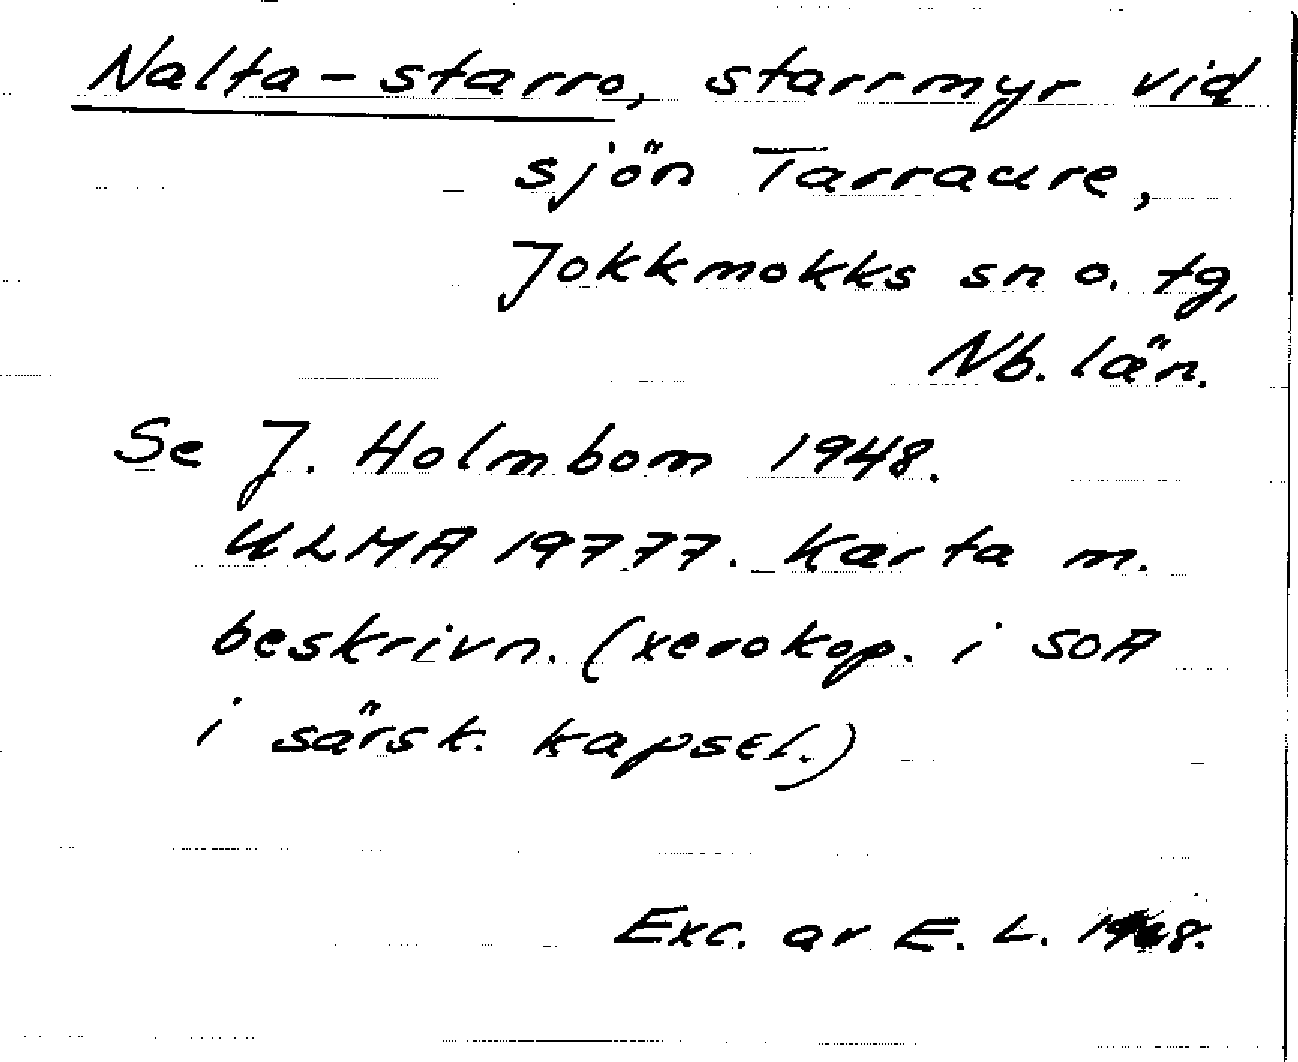 Nalta-starro, starrmyr vid
sjön Tarraure,
Jokkmokks sn o. tg,
Nb. län.
Se J. Holmbom 1948.
ULMA 19777. Karta m.
beskrivn. (xerokop. i SOA
i särsk. kapsel.)
Exc. av E. L.